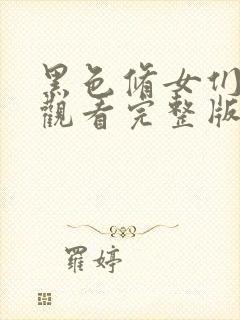 黑色脩女們
觀看完整版
羅婷